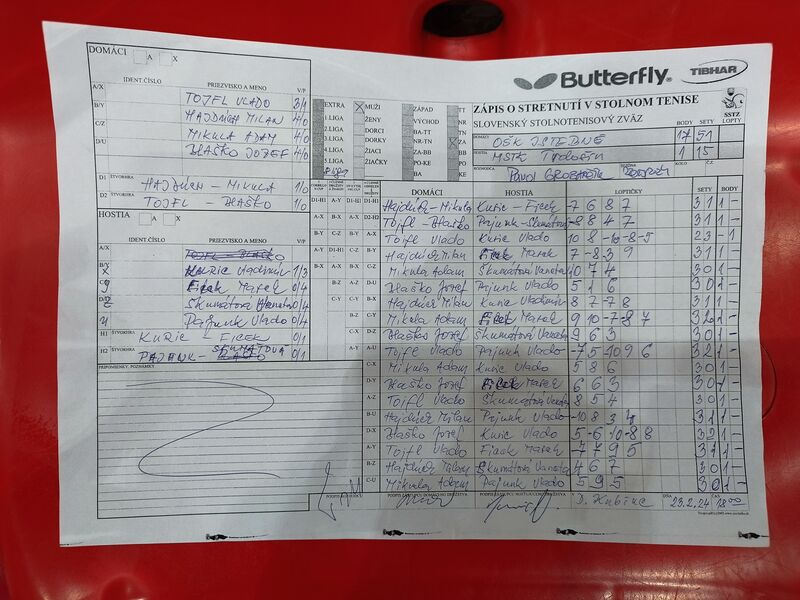 DOMÁCI A X
IDENT.ČÍSLO PRIEZVISKO A MENO V/P
A/X TOJFL VLADO 3/1
B/Y HAJDÚCH MILAN 4/0
C/Z MIKULA ADAM 4/0
D/U BLAŠKO JOZEF 4/0
D1 ŠTVORHRA HAJDÚCH - MIKULA 1/0
D2 ŠTVORHRA TOJFL - BLAŠKO 1/0
HOSTIA A X
IDENT.ČÍSLO PRIEZVISKO A MENO V/P
X KURIC Vladimír 1/3
y Ficek Marek 0/4
Škumátová Vaneta 0/4
u Pajunk Vlado 0/4
H1 ŠTVORHRA KURIC - FICEK 0/1
H2 ŠTVORHRA PAJUNK - ŠKUMÁTOVÁ 0/1
PRIPOMIENKY, POZNÁMKY
Butterfly TIBHAR
EXTRA X MUŽI ZÁPAD TT
1.LIGA ŽENY VÝCHOD NR
2.LIGA DORCI BA-TT TN
3.LIGA DORKY NR-TN ZA
4.LIGA ŽIACI ZA-BB BB
5.LIGA ŽIAČKY PO-KE PO
BA KE
ZÁPIS O STRETNUTÍ V STOLNOM TENISE
SLOVENSKÝ STOLNOTENISOVÝ ZVÄZ
SSTZ
BODY SETY LOPTY
DOMÁCI OŠK ISTEBNÉ 17 51
HOSTIA MSTK 1 15
ROZHODCA KOLO Č.Z.
DOMÁCI HOSTIA LOPTIČKY SETY BODY
Hajdúch - Mikula Kuric - Ficek -7 6 8 7 3 1 1 -
Tojfl - Blaško Pajunk - Škumátová -8 8 4 7 3 1 1 -
Tojfl Vlado Kuric Vlado 10 8 -10 -8 -5 2 3 - 1
Hajdúch Milan Ficek Marek 7 -8 3 9 3 1 1 -
Mikula Adam Škumátová Vaneta 10 7 4 3 0 1 -
Blaško Jozef Pajunk Vlado 5 1 6 3 0 1 -
Hajdúch Milan Kuric Vladimír 8 7 -7 8 3 1 1 -
Mikula Adam Ficek Marek 9 10 -7 -8 7 3 2 1 -
Blaško Jozef Škumátová Vaneta 9 6 3 3 0 1 -
Tojfl Vlado Pajunk Vlado -7 5 -10 9 6 3 2 1 -
Mikula Adam Kuric Vlado 5 8 6 3 0 1 -
Blaško Jozef Ficek Marek 6 6 3 3 0 1 -
Tojfl Vlado Škumátová Vaneta 8 5 4 3 0 1 -
Hajdúch Milan Pajunk Vlado -10 8 3 4 3 1 1 -
Blaško Jozef Kuric Vlado 5 -6 10 -8 8 3 2 1 -
Tojfl Vlado Ficek Marek -7 7 9 5 3 1 1 -
Hajdúch Milan Škumátová Vaneta 4 6 7 3 0 1 -
Mikula Adam Pajunk Vlado 5 9 5 3 0 1 -
PODPIS ROZHODCU PODPIS ZÁSTUPCU DOMÁCEHO DRUŽSTVA PODPIS ZÁSTUPCU HOSŤUJÚCEHO DRUŽSTVA D. Kubín DŇA 23.2.24 ČAS 18:00